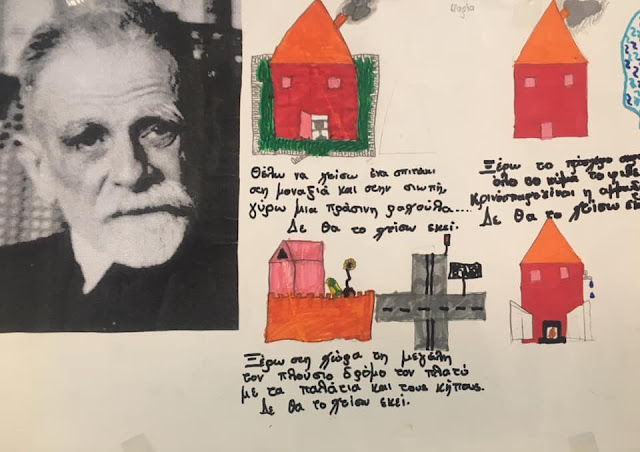 Μαρία
Θέλω να χτίσω ένα σπιτάκι
στη μοναξιά και στην σιωπή,
γύρω μια πράσινη ραχούλα....
Δε θα το χτίσω εκεί.
Ξέρω το
όλο το κύμα το
η
Δε θα το χτίσω
Ξέρω στη χώρα τη μεγάλη
τον πλούσιο δρόμο τον πλατύ
με τα παλάτια και τους κήπους.
Δε θα το χτίσω εκεί.